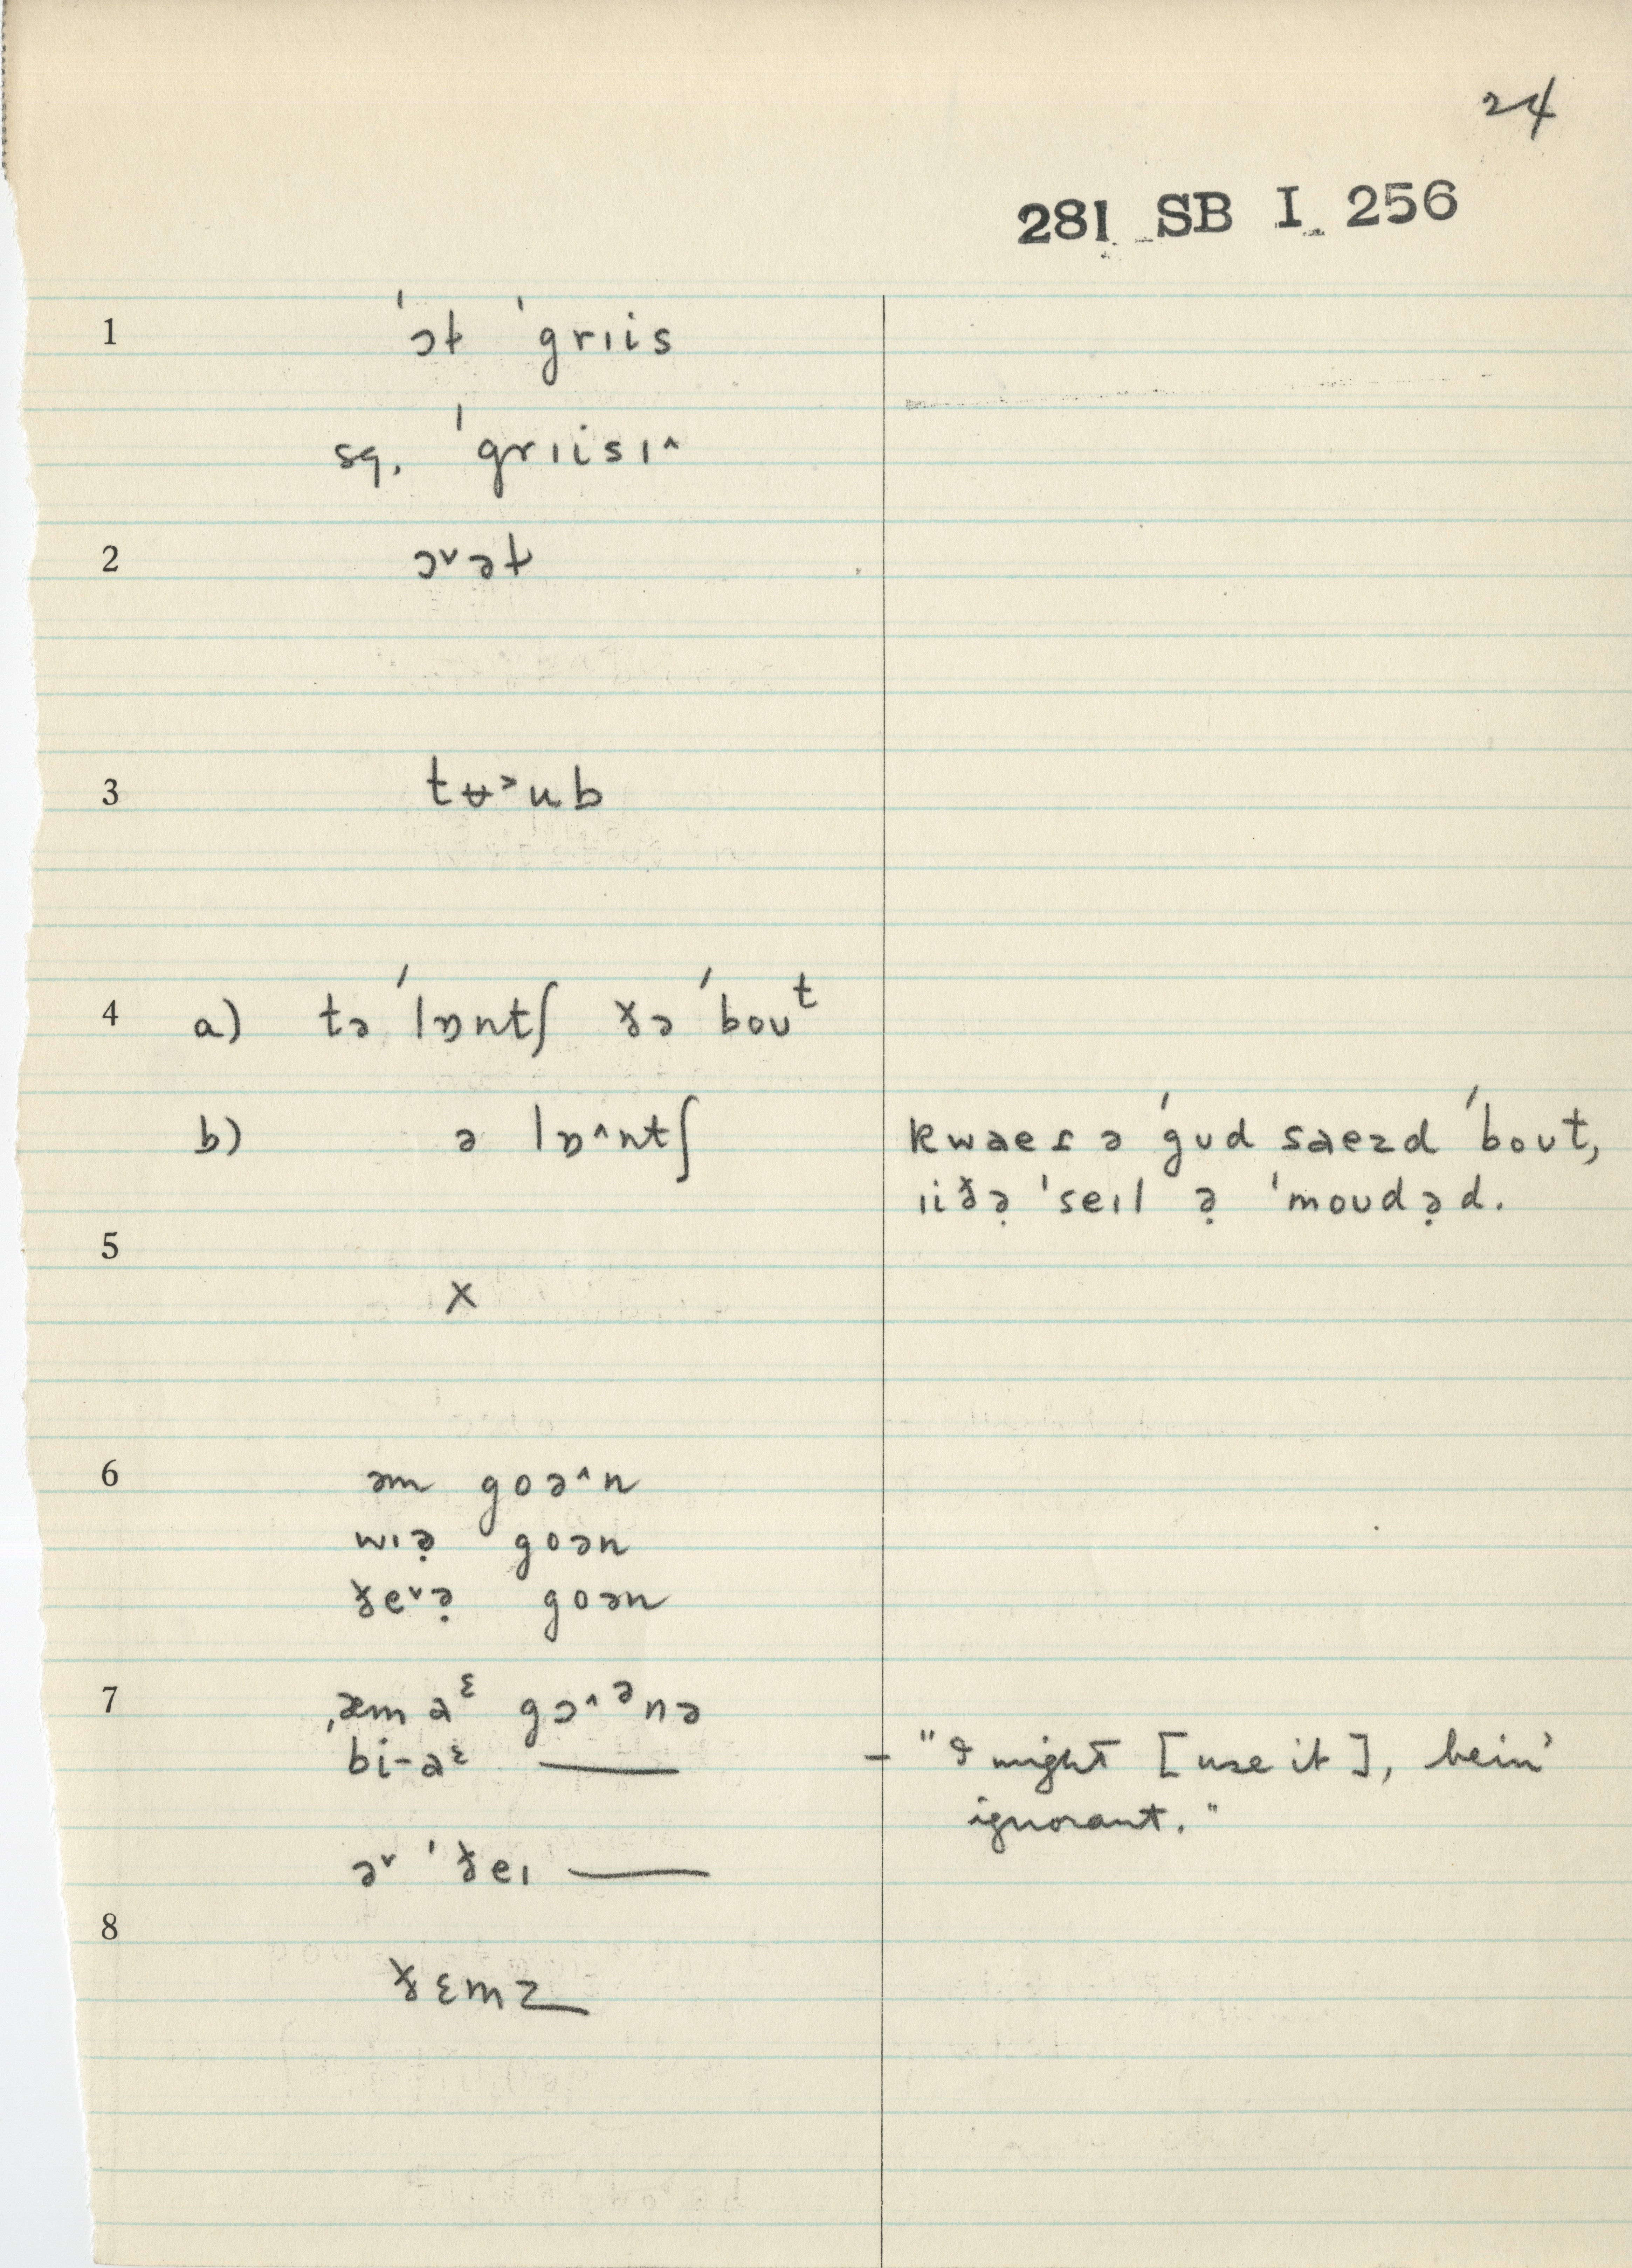 24
281 SB I 256
1 ˈɔɫ ˈgrɪis
sq. ˈgrɪisɪ^
2 ɔ˅əɫ
3 tʉ˃ub
4 a) tə ˈlɒntʃ ðə ˈboʊᵗ
b) ə lɒ^ntʃ kwaeɾ ə ˈgʊd saezd ˈboʊt,
ɪiðə̣ ˈseɪl ə̣ ˈmoʊdə̣d.
5
x
6 əm goə^n
wɪə̣ goən
ðe˅ə̣ goən
7 ˌæm aᵋ gɔ^ᵊnə
bi-aᵋ — – "I might [use it], bein'
ignorant."
ə˅ ˈðeɪ —
8
ðɛmz